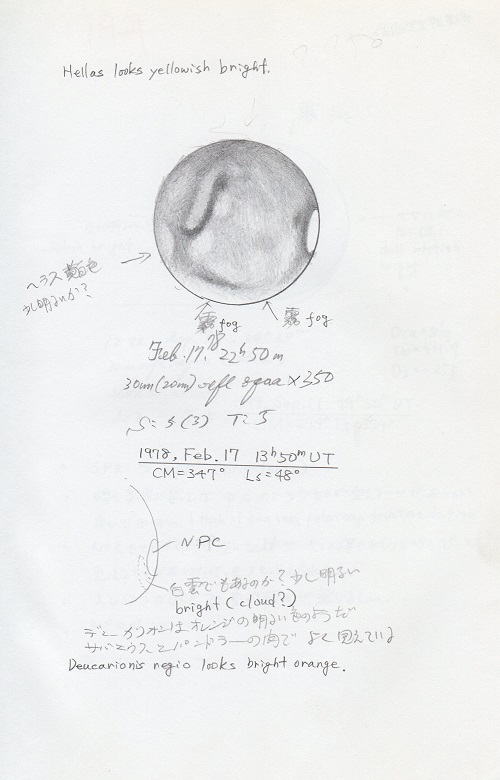 Hellas looks yellowish bright.
ヘラス黄白色
少し明るいか?
霧 fog
霧 fog
Feb. 17. '78 22h 50m
30cm (20cm) refl ×350
S=5 (3) T=5
1978, Feb. 17 13h50m UT
CM=347° Ls=48°
NPC
白雲でもあるのか?少し明るい
bright (cloud?)
デューカリオンはオレンジの明るい色のようだ
サバエウスとパンドラーの間で よく見えている
Deucarionis regio looks bright orange.